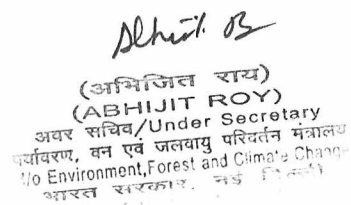 (अभिजित राय)
(ABHIJIT ROY)
अवर सचिव/Under Secretary
पर्यावरण, वन एवं जलवायु परिवर्तन मंत्रालय
M/o Environment,Forest and Climate Change
भारत सरकार, नई दिल्ली